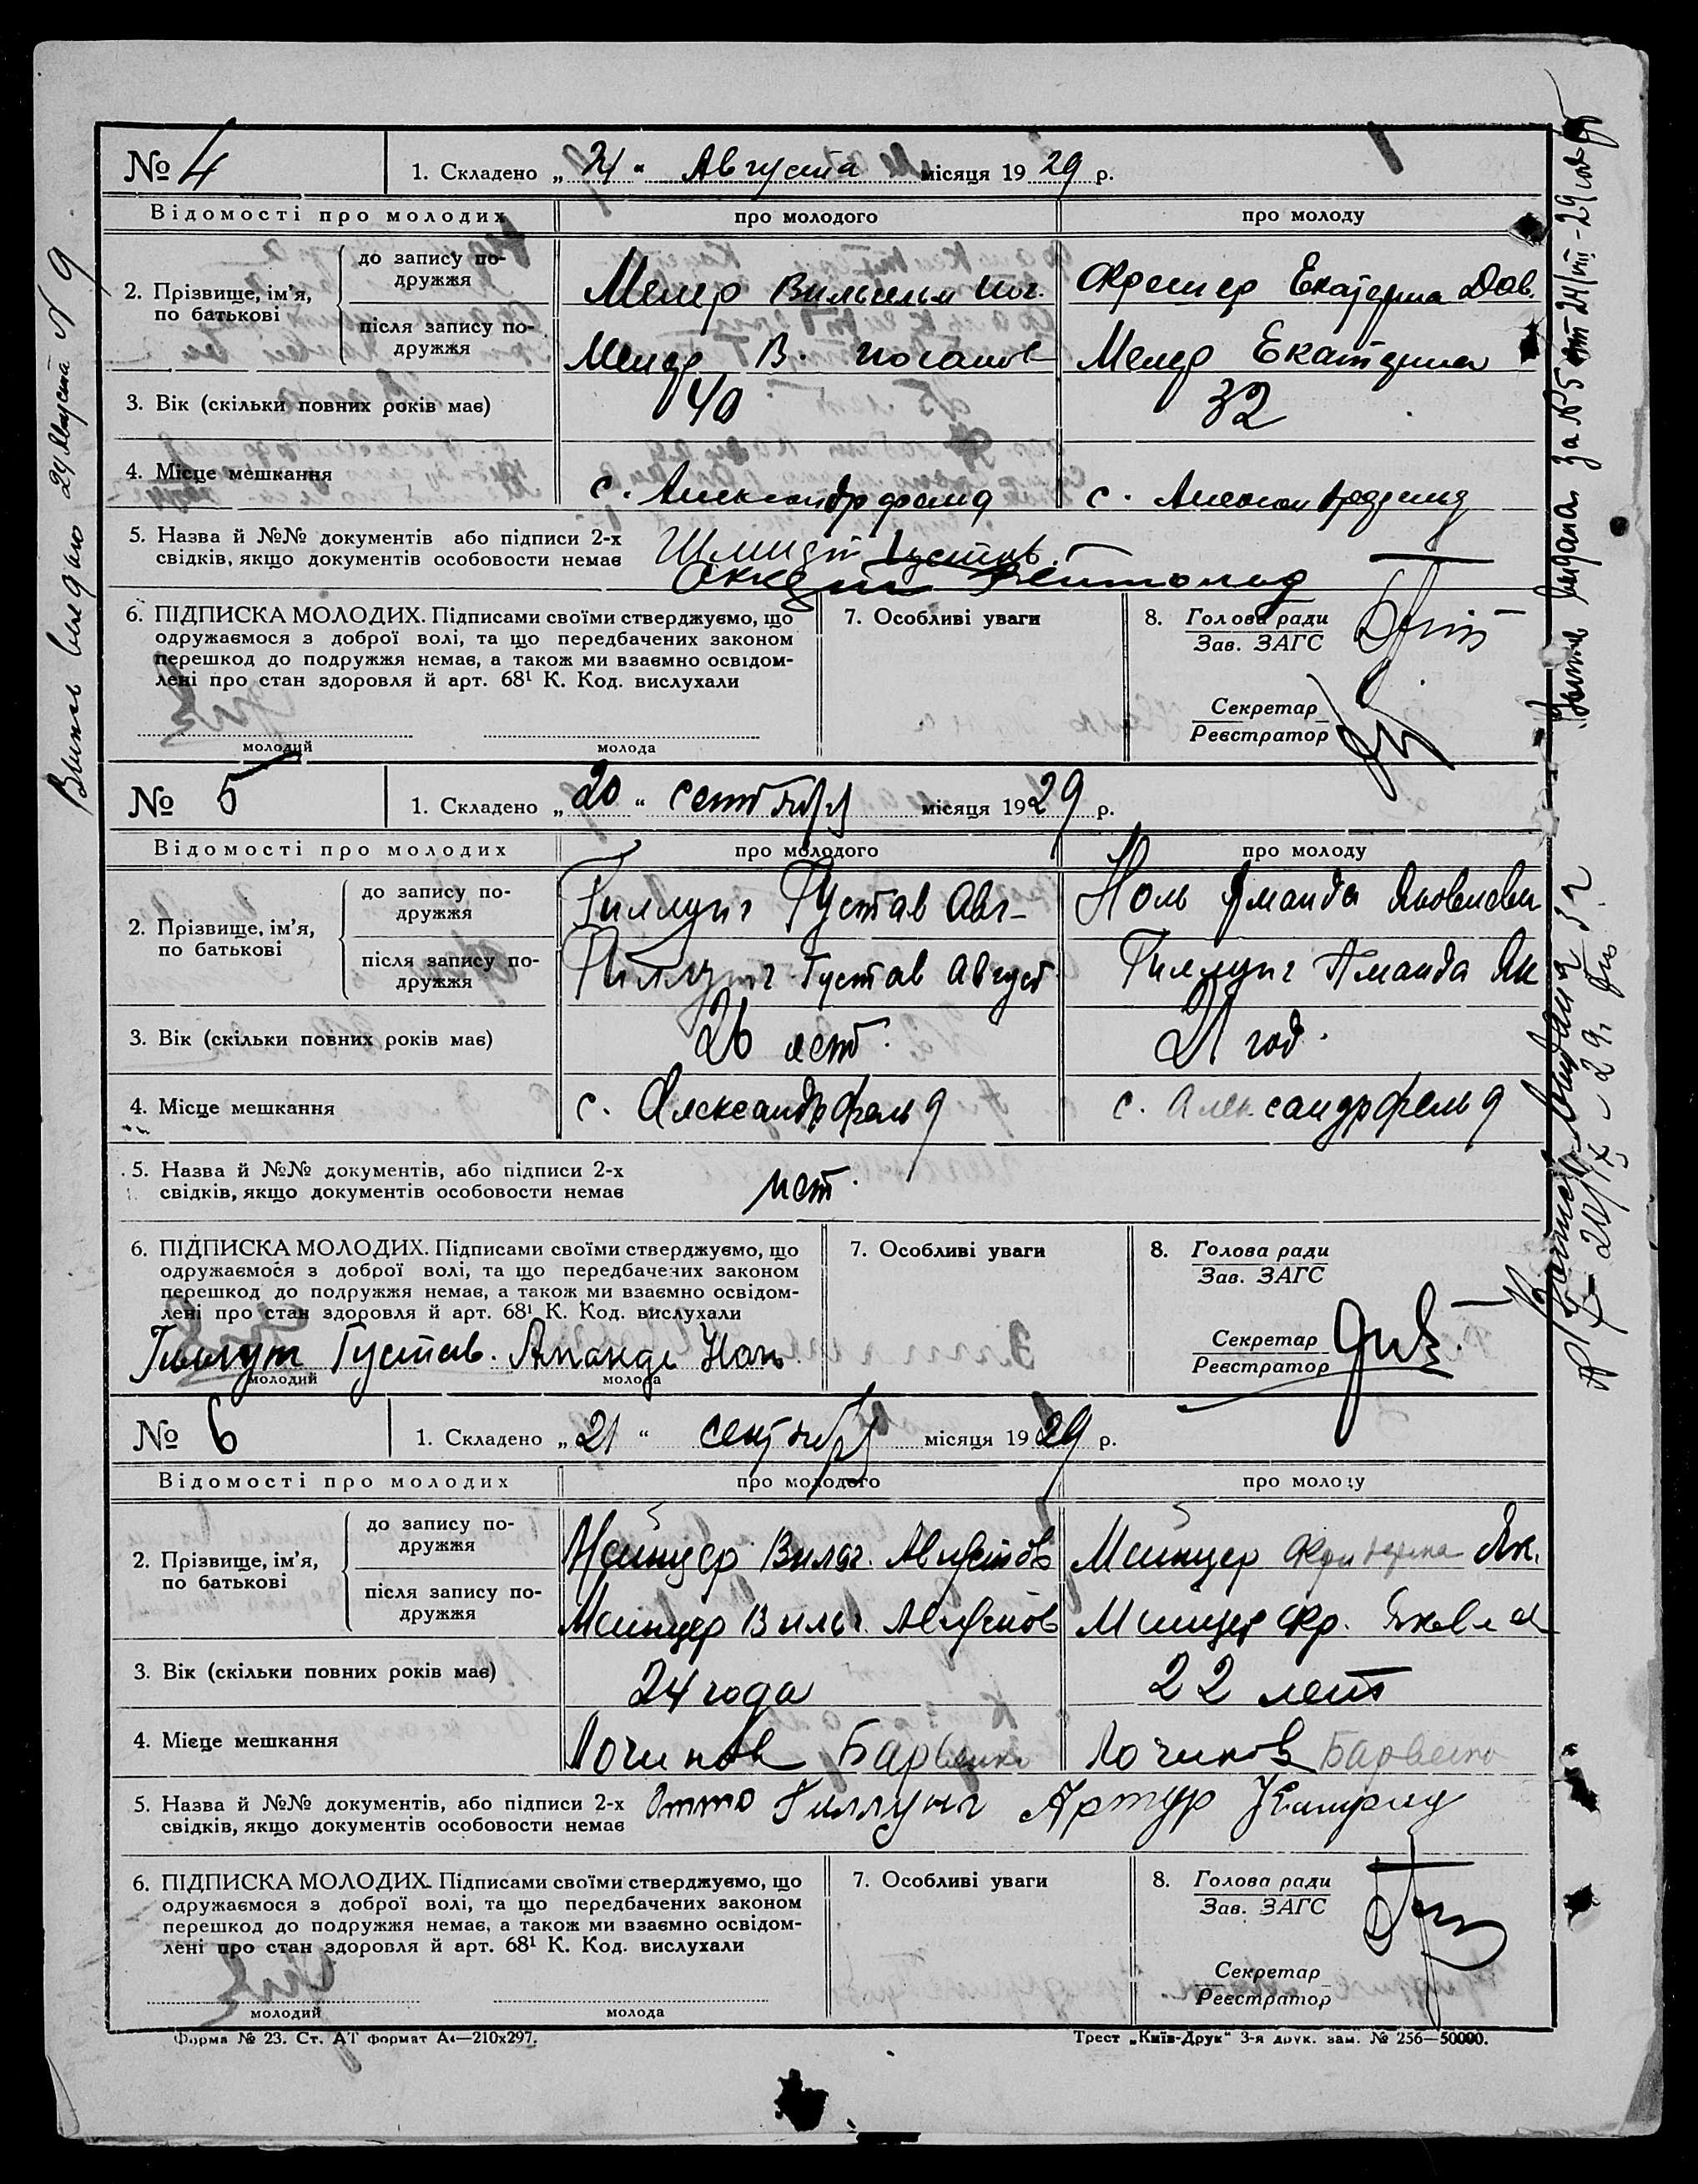 № 4
1. Складено „ 24 “ Августа місяця 19 29 р.
Відомості про молодих
про молодого
про молоду
2. Прізвище, ім’я, по батькові
до запису по-
дружжя
Вильгельм
Екатерина Дав.
після запису по-
дружжя
В.
Екатерина
3. Вік (скільки повних років має)
40
32
4. Місце мешкання
с. Александрфельд
с. Александрфельд
5. Назва й №№ документів або підписи 2-х
свідків, якщо документів особовости немає
Шмидт Густав.
6. ПІДПИСКА МОЛОДИХ. Підписами своїми стверджуємо, що
одружаємося з доброї волі, та що передбачених законом
перешкод до подружжя немає, а також ми взаємно освідом-
лені про стан здоровля й арт. 68¹ К. Код. вислухали
молодий
молода
7. Особливі уваги
8. Голова ради
Зав. ЗАГС
Секретар
Реєстратор
№ 5
1. Складено „ 20 “ сентября місяця 19 29 р.
Відомості про молодих
про молодого
про молоду
2. Прізвище, ім’я,
по батькові
до запису по-
дружжя
Гиллунг Густав Авг-
Ноль Аманда Яковлевн
після запису по-
дружжя
Гиллунг Густав Август
Гиллунг Аманда Як
3. Вік (скільки повних років має)
26 лет.
21 год.
4. Місце мешкання
с. Александрфельд
с. Александрфельд
5. Назва й №№ документів, або підписи 2-х
свідків, якщо документів особовости немає
нет.
6. ПІДПИСКА МОЛОДИХ. Підписами своїми стверджуємо, що
одружаємося з доброї волі, та що передбачених законом
перешкод до подружжя немає, а також ми взаємно освідом-
лені про стан здоровля й арт. 68¹ К. Код. вислухали
Густав. Аманда Ноль
молодий
молода
7. Особливі уваги
8. Голова ради
Зав. ЗАГС
Секретар
Реєстратор
№ 6
1. Складено „ 21 “ сентября місяця 19 29 р.
Відомості про молодих
про молодого
про молоду
2. Прізвище, ім’я,
по батькові
до запису по-
дружжя
Мейнцер Вильг. Августов
Мейнцер Як.
після запису по-
дружжя
Мейнцер Вильг. Августов
Мейнцер Фр.
3. Вік (скільки повних років має)
24 года
22 лет
4. Місце мешкання
Починов Барвенко
Починов Барвенко
5. Назва й №№ документів, або підписи 2-х
свідків, якщо документів особовости немає
Отто Гиллунг Артур
6. ПІДПИСКА МОЛОДИХ. Підписами своїми стверджуємо, що
одружаємося з доброї волі, та що передбачених законом
перешкод до подружжя немає, а також ми взаємно освідом-
лені про стан здоровля й арт. 68¹ К. Код. вислухали
молодий
молода
7. Особливі уваги
8. Голова ради
Зав. ЗАГС
Секретар
Реєстратор
Форма № 23. Ст. АТ формат А4—210х297.
Трест „Київ-Друк“ 3-я друк. зам. № 256—50000.
24 Августа № 9
за № 5 от 24/VIII-29